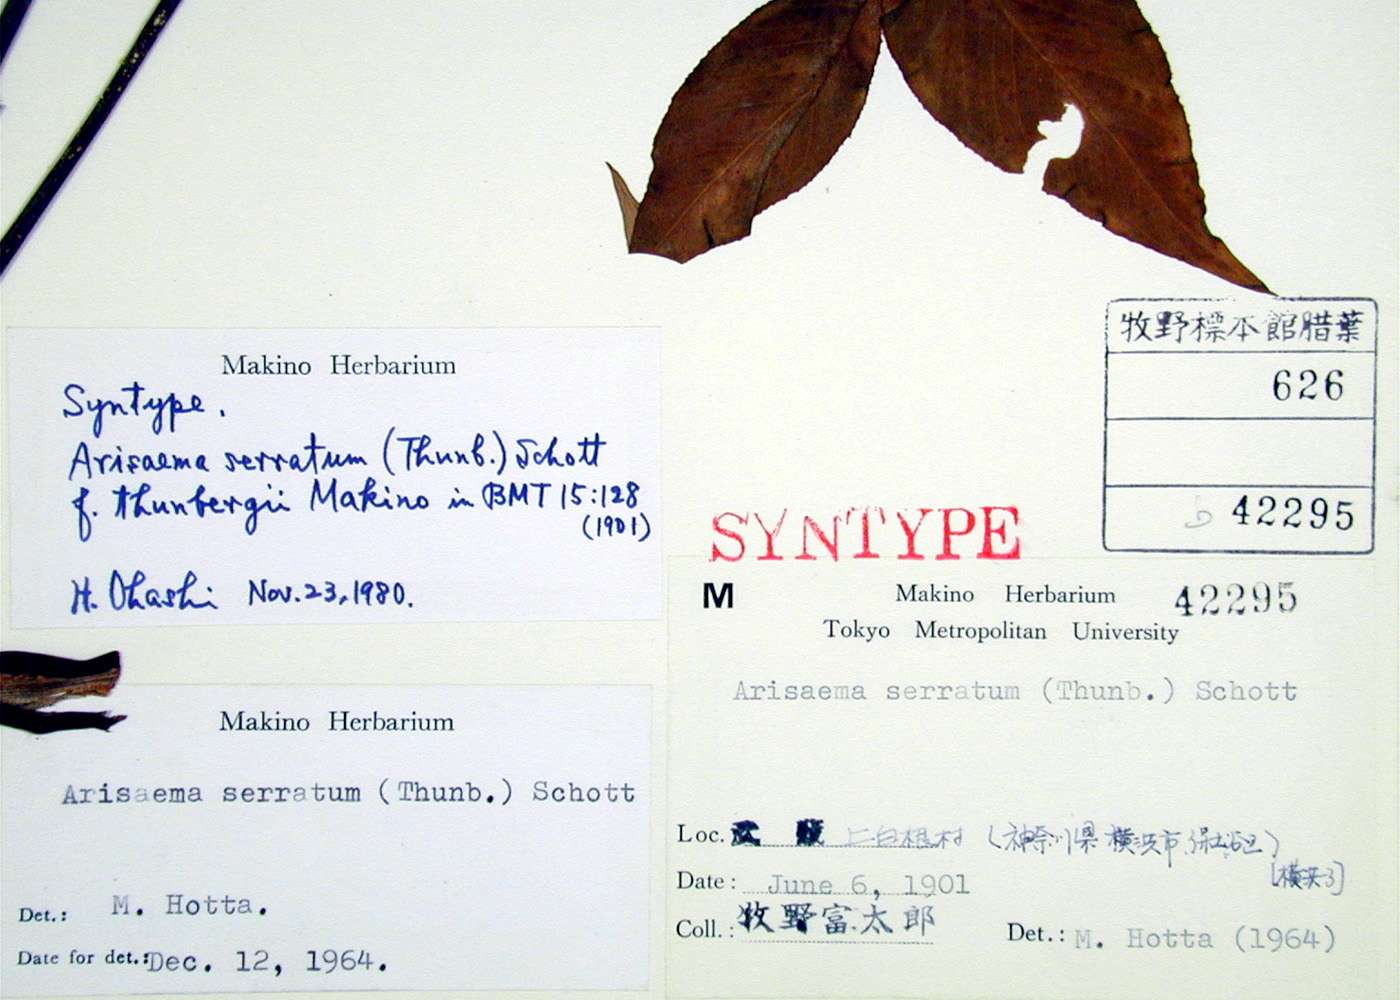 Makino Herbarium
Syntype.
Arisaema serratum (Thunb.) Schott
f. thunbergii Makino in BMT 15:128
(1901)
H. Ohashi Nov. 23, 1980.
Makino Herbarium
Arisaema serratum (Thunb.) Schott
Det.: M. Hotta.
Date for det.: Dec. 12, 1964.
牧野標本館腊葉
626
42295
SYNTYPE
M
Makino Herbarium 42295
Tokyo Metropolitan University
Arisaema serratum (Thunb.) Schott
Loc. 武蔵 上白根村 (神奈川県横浜市保土ヶ谷区)
Date: June 6, 1901
Coll.: 牧野富太郎 Det.: M. Hotta (1964)